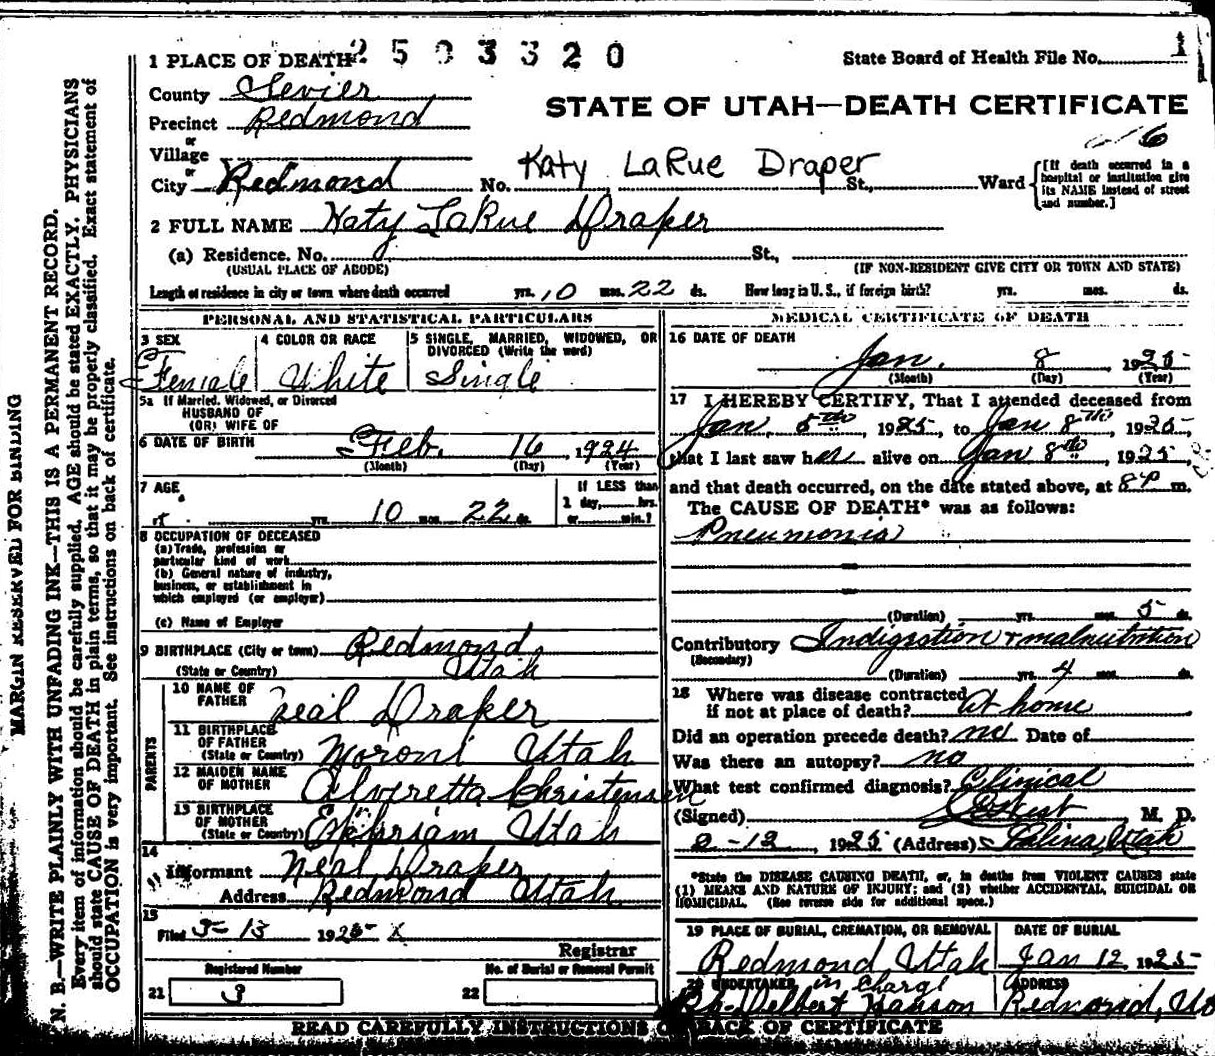 1 PLACE OF DEATH
2503320
State Board of Health File No. 1
County Sevier
STATE OF UTAH—DEATH CERTIFICATE
Precinct Redmond
or
Village
or
City Redmond No. Katy LaRue Draper St., Ward
[If death occurred in a
hospital or institution give
its NAME instead of street
and number.]
2 FULL NAME Katy LaRue Draper
(a) Residence. No. St.,
(USUAL PLACE OF ABODE) (IF NON-RESIDENT GIVE CITY OR TOWN AND STATE)
Length of residence in city or town where death occurred yrs. 10 mos. 22 ds. How long in U. S., if foreign birth? yrs. mos. ds.
PERSONAL AND STATISTICAL PARTICULARS
3 SEX
Female
4 COLOR OR RACE
White
5 SINGLE, MARRIED, WIDOWED, OR
DIVORCED (Write the word)
Single
5a If Married, Widowed, or Divorced
HUSBAND OF
(OR) WIFE OF
6 DATE OF BIRTH Feb. 16, 1924
(Month) (Day) (Year)
7 AGE
yrs. 10 mos. 22 ds.
If LESS than
1 day, hrs.
or min.?
8 OCCUPATION OF DECEASED
(a) Trade, profession or
particular kind of work
(b) General nature of industry,
business, or establishment in
which employed (or employer)
(c) Name of Employer
9 BIRTHPLACE (City or town) Redmond,
(State or Country) Utah
PARENTS
10 NAME OF
FATHER Neal Draper
11 BIRTHPLACE
OF FATHER
(State or Country) Moroni Utah
12 MAIDEN NAME
OF MOTHER Alveretta Christensen
13 BIRTHPLACE
OF MOTHER
(State or Country) Ephriam Utah
14
Informant Neal Draper
Address Redmond Utah
15
Filed 3-13 1925 X
Registrar
Registered Number
21 3
No. of Burial or Removal Permit
22
MEDICAL CERTIFICATE OF DEATH
16 DATE OF DEATH
Jan. 8 1925
(Month) (Day) (Year)
17 I HEREBY CERTIFY, That I attended deceased from
Jan. 5th, 1925, to Jan 8th, 1925,
that I last saw her alive on Jan 8th, 1925,
and that death occurred, on the date stated above, at 8 P m.
The CAUSE OF DEATH* was as follows:
Pneumonia
(Duration) yrs. mos. 5 ds.
Contributory Indigestion & malnutrition
(Secondary)
(Duration) yrs. 4 mos. ds.
18 Where was disease contracted
if not at place of death? At home
Did an operation precede death? no Date of
Was there an autopsy? no
What test confirmed diagnosis? Clinical
(Signed) M. D.
2-12, 1925 (Address) Salina, Utah
*State the DISEASE CAUSING DEATH, or, in deaths from VIOLENT CAUSES state
(1) MEANS AND NATURE OF INJURY; and (2) whether ACCIDENTAL, SUICIDAL OR
HOMICIDAL. (See reverse side for additional space.)
19 PLACE OF BURIAL, CREMATION, OR REMOVAL
Redmond Utah
DATE OF BURIAL
Jan 12, 1925
20 UNDERTAKER in Charge
Delbert Hanson
ADDRESS
Redmond, Ut
READ CAREFULLY INSTRUCTIONS ON BACK OF CERTIFICATE
MARGIN RESERVED FOR BINDING
N. B.—WRITE PLAINLY WITH UNFADING INK—THIS IS A PERMANENT RECORD.
Every item of information should be carefully supplied. AGE should be stated EXACTLY. PHYSICIANS
should state CAUSE OF DEATH in plain terms, so that it may be properly classified. Exact statement of
OCCUPATION is very important. See instructions on back of certificate.